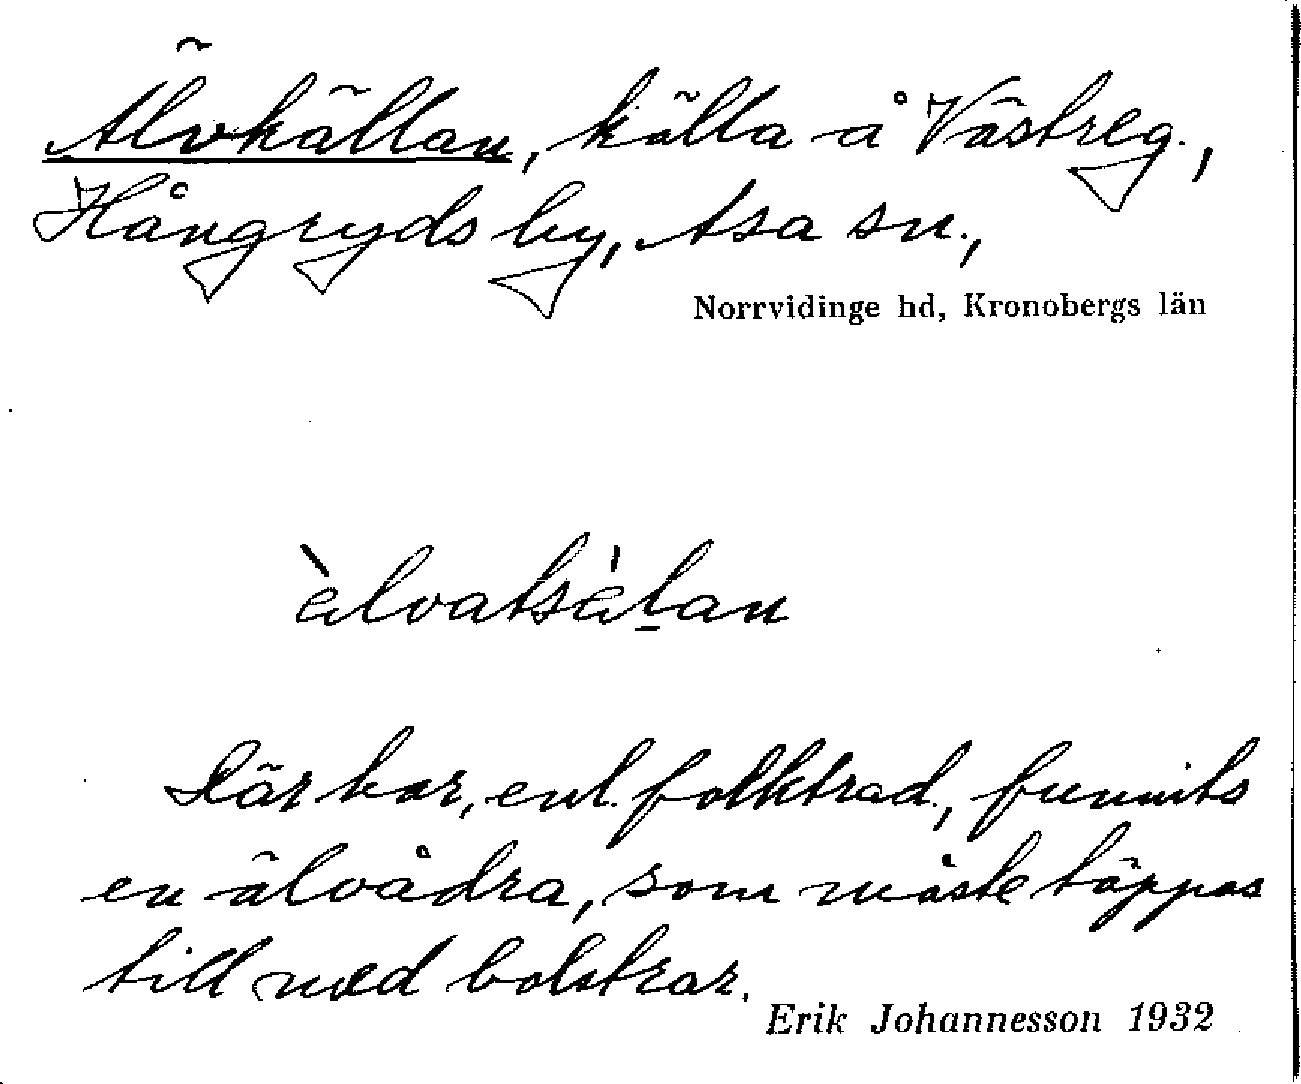 Älvkällan, källa å Västreg.,
Hångryds by, Asa sn.,
Norrvidinge hd, Kronobergs län
àlvatsàlan
Där har, enl. folktrad., funnits
en älvådra, som måste täppas
till med bolstrar.
Erik Johannesson 1932